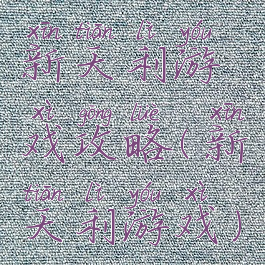 xīn tiān lì yóu
新天利游
xì gōng lüè xīn
戏攻略(新
tiān lì yóu xì
天利游戏)